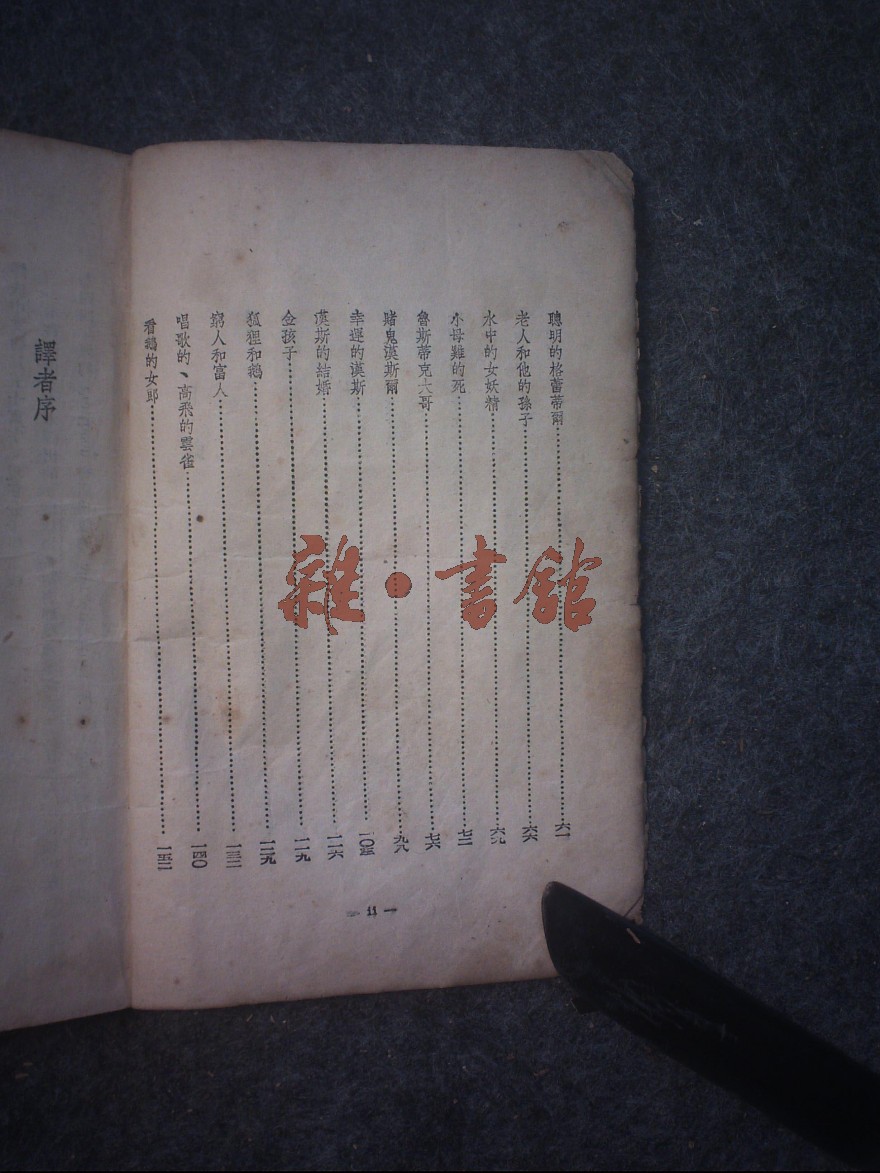 聰明的格蕾蒂爾……六一
老人和他的孫子……六六
水中的女妖精……六九
小母雞的死……七二
魯斯蒂克大哥……七六
賭鬼漢斯爾……九八
幸運的漢斯……一〇五
漢斯的結婚……一一六
金孩子……一一九
狐狸和鵝……一二九
窮人和富人……一三二
唱歌的、高飛的雲雀……一四〇
看鵝的女郎……一五二
— 11 —
譯者序
雜·書館